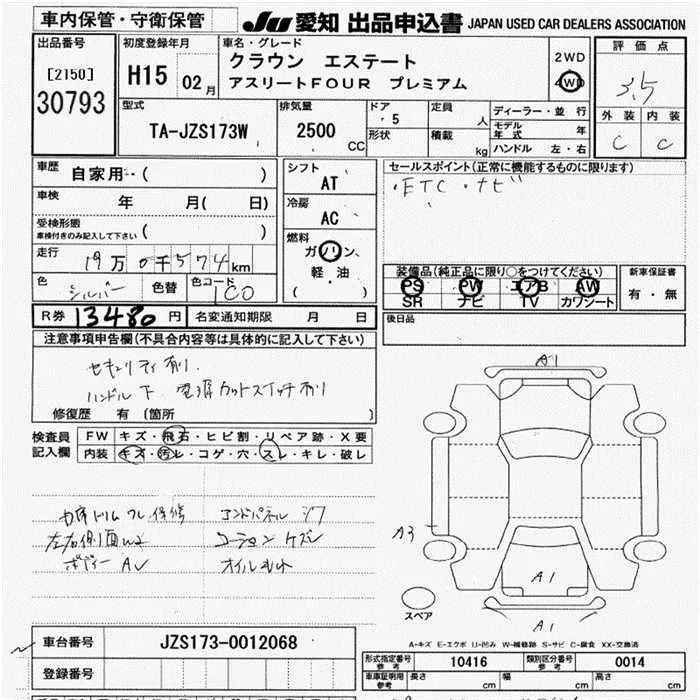 車内保管・守衛保管
JU 愛知 出品申込書 JAPAN USED CAR DEALERS ASSOCIATION
出品番号
[2150]
30793
初度登録年月
H15 02月
車名・グレード
クラウン エステート
アスリートFOUR プレミアム
2WD
4WD
評価点
3.5
外装 内装
C C
型式
TA-JZS173W
排気量
2500 CC
ドア 5
形状
定員 人
積載 kg
ディーラー・並行
モデル年式
ハンドル 左・右
車歴 自家用・( )
車検 年 月( 日)
受検形態
車検付きのみ記入して下さい ( )
走行 19万0千574km
色 シルバー 色替 色コード 1C0
シフト
AT
冷房
AC
燃料
ガソリン、
軽・油
( )
セールスポイント(正常に機能するものに限ります)
・ETC・ナビ
装備品(純正品に限り○をつけてください)
PS PW エアB AW
SR ナビ TV カワシート
新車保証書
有・無
後日品
R券 13480円 名変通知期限 月 日
注意事項申告欄(不具合内容等は具体的に記入して下さい)
セキュリティ有り.
ハンドル下 電源カットスイッチ有り
修復歴 有 〔箇所 〕
検査員記入欄
FW キズ・飛石・ヒビ割・リペア跡・X要
内装 キズ・汚れ・コゲ・穴・スレ・キレ・破レ
エンドパネル
左右側面
ボディー
A1
A3
A1
A1
スペア
A-キズ E-エクボ U-凹み W-補修跡 S-サビ C-腐食 XX-交換済
車台番号 JZS173-0012068
登録番号
形式指定番号 参考 10416 類別区分番号 参考 0014
車庫証明用 参考 長さ cm 幅 cm 高さ cm